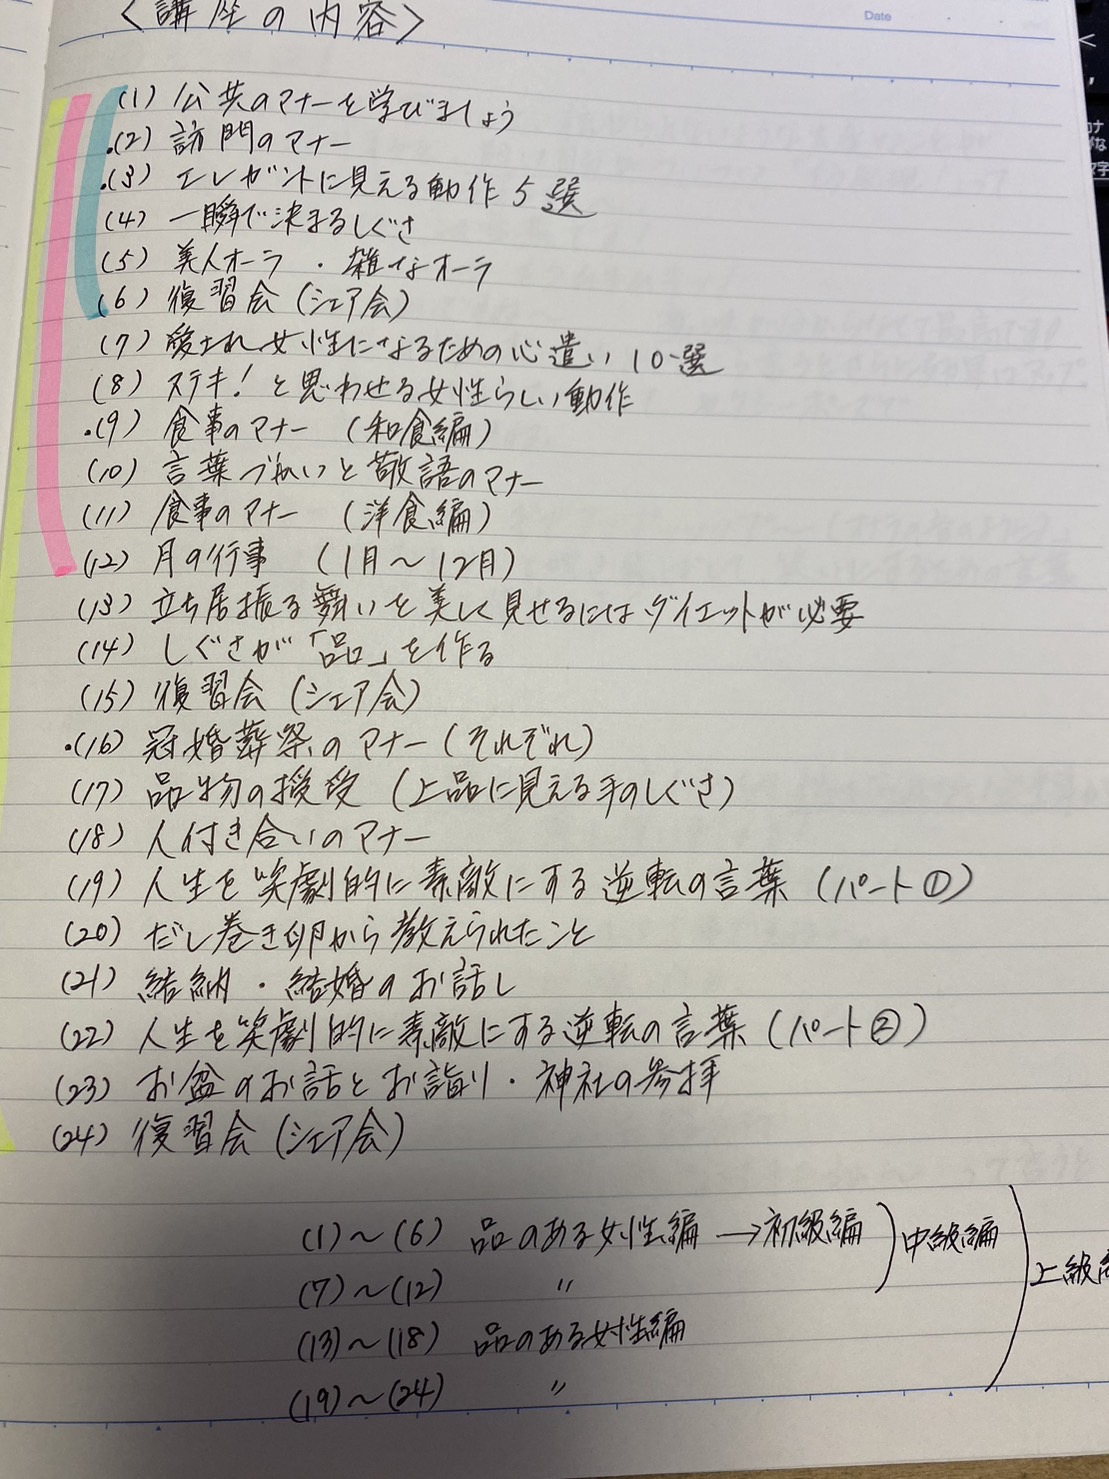 <講座の内容>
Date
(1) 公共のマナーを学びましょう
・(2) 訪問のマナー
・(3) エレガントに見える動作5選
(4) 一瞬で決まるしぐさ
(5) 美人オーラ・雑なオーラ
(6) 復習会(シェア会)
(7) 愛され女性になるための心遣い10選
(8) ステキ!と思わせる女性らしい動作
・(9) 食事のマナー (和食編)
(10) 言葉づかいと敬語のマナー
(11) 食事のマナー (洋食編)
(12) 月の行事 (1月〜12月)
(13) 立ち居振る舞いを美しく見せるにはダイエットが必要
(14) しぐさが「品」を作る
(15) 復習会(シェア会)
・(16) 冠婚葬祭のマナー(それぞれ)
(17) 品物の授受 (上品に見える手のしぐさ)
(18) 人付き合いのマナー
(19) 人生を笑劇的に素敵にする逆転の言葉 (パート①)
(20) だし巻き卵から教えられたこと
(21) 結納・結婚のお話し
(22) 人生を笑劇的に素敵にする逆転の言葉 (パート②)
(23) お盆のお話とお詣り・神社の参拝
(24) 復習会(シェア会)
(1)〜(6) 品のある女性編→初級編) 中級編
(7)〜(12) 〃
) 上級
(13)〜(18) 品のある女性編
(19)〜(24) 〃